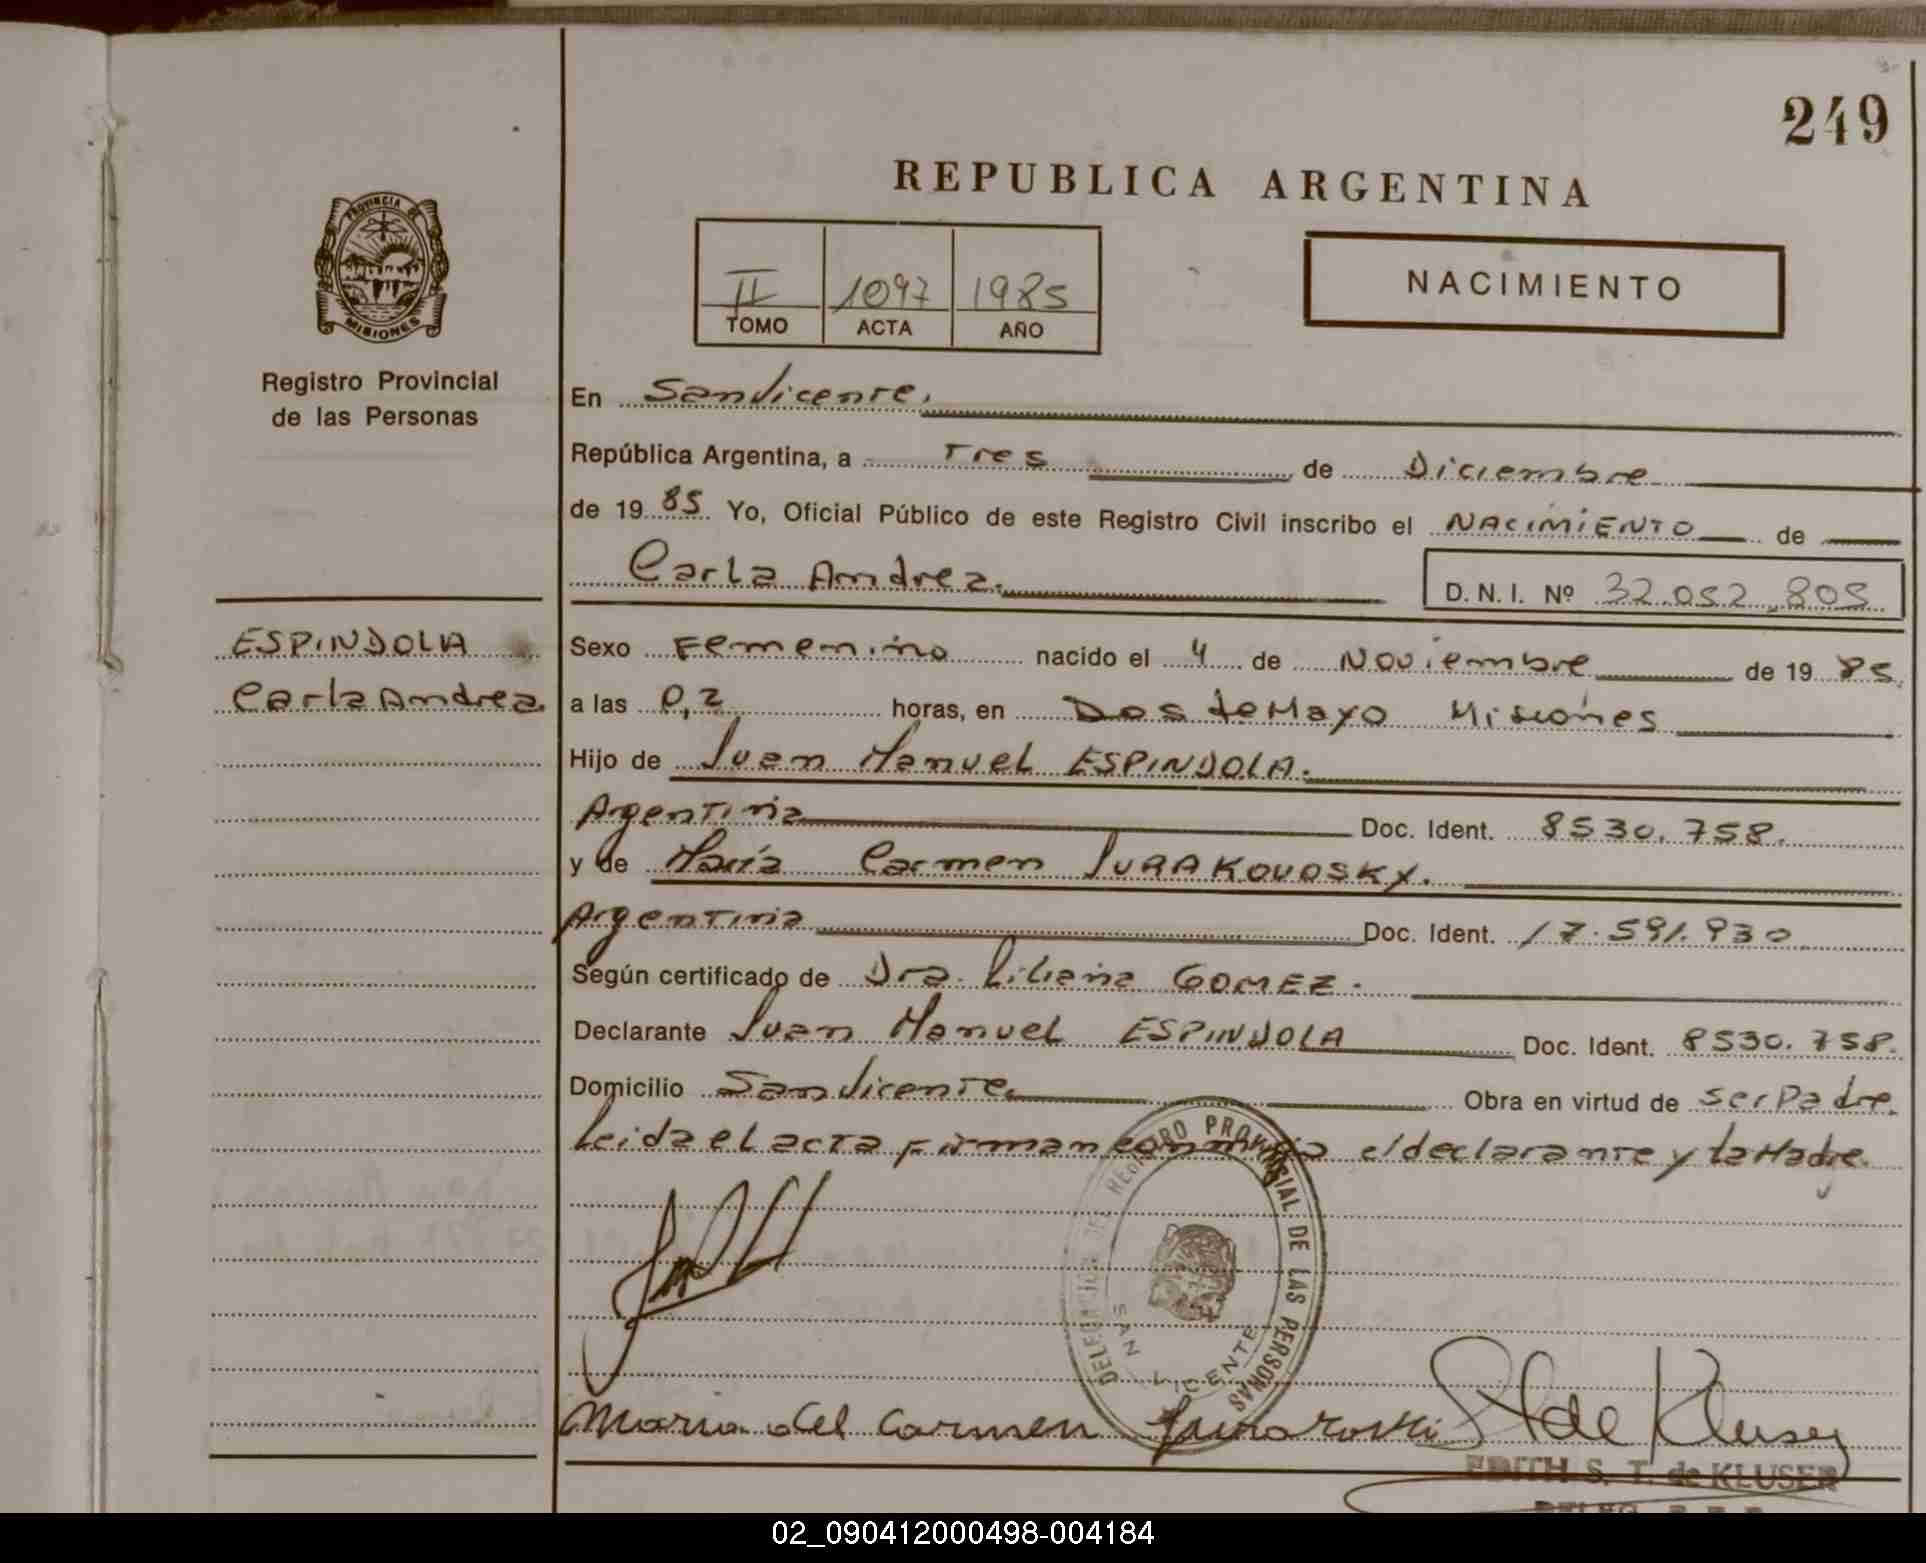 249
REPUBLICA ARGENTINA
PROVINCIA DE
MISIONES
Registro Provincial
de las Personas
II 1097 1985
TOMO ACTA AÑO
NACIMIENTO
En San Vicente.
República Argentina, a Tres de Diciembre
de 19 85 Yo, Oficial Público de este Registro Civil inscribo el NACIMIENTO de
Carla Andrea.
D. N. I. Nº 32.052.805
ESPINDOLA
Carla Andrea.
Sexo Femenino nacido el 4 de Noviembre de 19 85.
a las 0,2 horas, en Dos de Mayo Misiones
Hijo de Juan Manuel ESPINDOLA.
Argentina Doc. Ident. 8530.758.
y de María Carmen JURAKOVOSKY.
Argentina Doc. Ident. 17.591.930
Según certificado de Dra. Liliana GOMEZ.
Declarante Juan Manuel ESPINDOLA Doc. Ident. 8530.758.
Domicilio San Vicente. Obra en virtud de ser Padre.
Leida el acta firman conmigo el declarante y la Madre.
DELEGACION DEL REGISTRO PROVINCIAL DE LAS PERSONAS
SAN VICENTE
Maria del Carmen
St de Kluser
EDITH S. T. de KLUSER
02_090412000498-004184